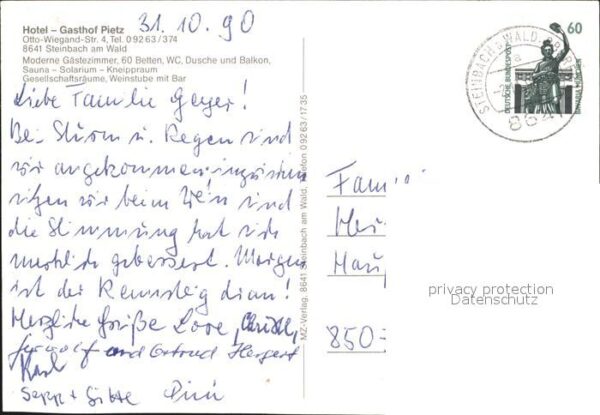 Hotel – Gasthof Pietz
Otto-Wiegand-Str. 4, Tel. 0 92 63 / 374
8641 Steinbach am Wald
Moderne Gästezimmer, 60 Betten, WC, Dusche und Balkon,
Sauna – Solarium – Kneippraum
Gesellschaftsräume, Weinstube mit Bar
31.10.90
Liebe Familie Geyer!
Bei Sturm u. Regen sind
wir angekommen, inzwischen
sitzen wir beim Wein und
die Stimmung hat sich
merklich gebessert. Morgen
ist der Rennsteig dran!
Herzliche Grüße Lore,
und Gertrud Hergert
Karl
Sepp +
MZ-Verlag, 8641 Steinbach am Wald, Telefon 0 92 63 / 17 35
STEINBACH a. WALD
864
60
DEUTSCHE BUNDESPOST
BAVARIA MÜNCHEN
Fam
Haup
850
privacy protection
Datenschutz